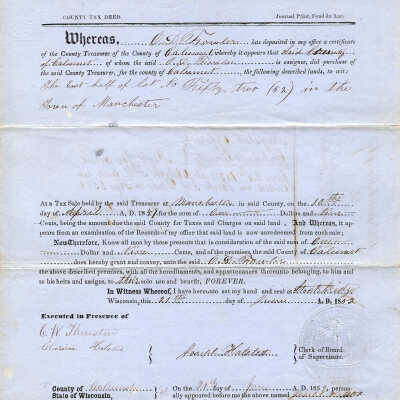 COUNTY TAX DEED. Journal Print, Fond du Lac.
Whereas, has deposited in my office a certificate
of the County Treasurer of the County of Calumet whereby it appears that said County
of Calumet, of whom the said is assignee, did purchase
of the said County Treasurer, for the county of Calumet, the following described lands, to wit:
The East half of lot No Fifty two (52) in the
Town of Manchester
At a Tax Sale held by the said Treasurer at Manchester in said County, on the 10th
day of April A. D. 1851 for the sum of One Dollar and
Cents, being the amount due the said County for Taxes and Charges on said land. And Whereas, it ap-
pears from an examination of the Records of my office that said land is now unredeemed from such sale;
Now Therefore, Know all men by these presents that in consideration of the said sum of One
Dollar and Cents, and of the premises, the said County of Calumet
does hereby grant and convey, unto the said
the above described premises, with all the hereditaments, and appurtenances thereunto belonging, to him and
to his heirs and assigns, to their sole use and benefit, FOREVER.
In Witness Whereof, I have hereunto set my hand and seal at
Wisconsin, this 21st day of June A. D. 185
Executed in Presence of
C. W. Thurston
Clerk of Board
of Supervisors.
County of
State of Wisconsin,
On the 21st day of June A. D. 185 , per-
appeared before me the above named